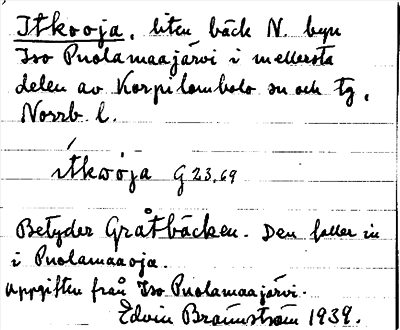 Itkooja, liten bäck N. byn
Iso Puolamaajärvi i mellersta
delen av Korpilombolo sn och tg,
Norrb. l.
ítkoòja G 23,69
Betyder Gråtbäcken. Den faller in
i Puolamaaoja.
Uppgiften från Iso Puolamaajärvi.
Edvin Brännström 1939.